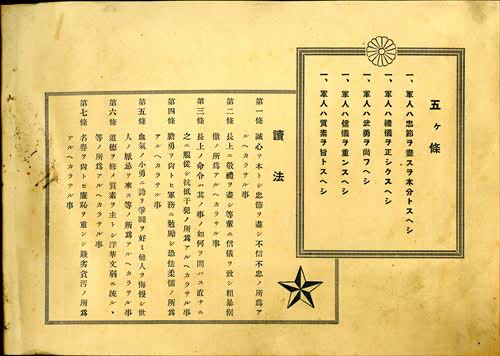 五ヶ條
一、軍人ハ忠節ヲ盡スヲ本分トスヘシ
一、軍人ハ禮儀ヲ正シクスヘシ
一、軍人ハ武勇ヲ尚フヘシ
一、軍人ハ信儀ヲ重ンスヘシ
一、軍人ハ質素ヲ旨トスヘシ
讀法
第一條 誠心ヲ本トシ忠節ヲ盡シ不信不忠ノ所爲ア
ルヘカラサル事
第二條 長上ニ敬禮ヲ盡シ等輩ニ信儀ヲ致シ粗暴倨
傲ノ所爲アルヘカラサル事
第三條 長上ノ命令ハ其ノ事ノ如何ヲ問ハス直チニ
之ニ服從シ抗抵干犯ノ所爲アルヘカラサル事
第四條 膽勇ヲ尚トヒ軍務ニ勉勵シ恐怯柔懦ノ所爲
アルヘカラサル事
第五條 血氣ノ小勇ニ誇リ爭鬪ヲ好ミ他人ヲ侮慢シ世
人ノ厭忌ヲ來ス等ノ所爲アルヘカラサル事
第六條 道德ヲ修メ質素ヲ主トシ浮華文弱ニ流ルヽ
等ノ所爲アルヘカラサル事
第七條 名譽ヲ尚トヒ廉恥ヲ重ンシ賤劣貪汚ノ所爲
アルヘカラサル事